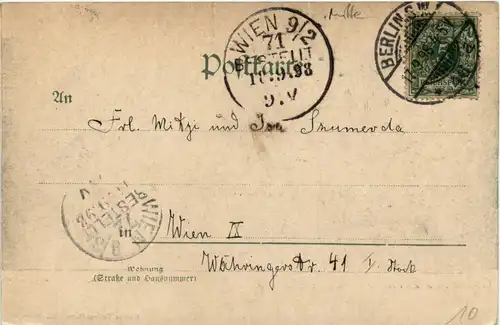 Mitte
WIEN 9/2
71
BESTELLT
18.9.98
9.V
BERLIN S.W.
Postkarte
An
Frl. Mitzi und
Szumerda
WIEN
BESTELLT
in
Wien IX
Wohnung
(Straße und Hausnummer)
Währingerstr. 41 I. Stock
10